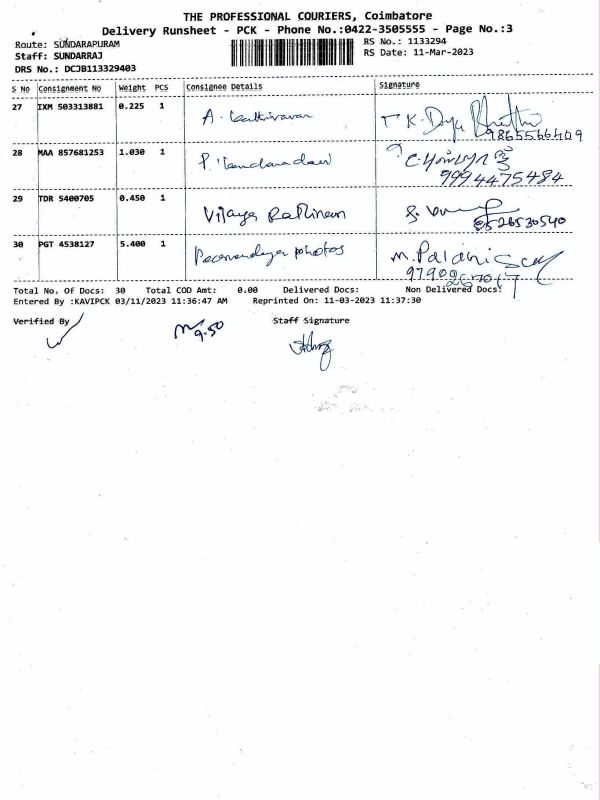 THE PROFESSIONAL COURIERS, Coimbatore
Delivery Runsheet - PCK - Phone No.:0422-3505555 - Page No.:3
Route: SUNDARAPURAM
RS No.: 1133294
Staff: SUNDARRAJ
RS Date: 11-Mar-2023
DRS No.: DCJB113329403
S No Consignment No Weight PCS Consignee Details Signature
27 IXM 503313881 0.225 1 A. Kathiravan
9865566409
28 MAA 857681253 1.030 1
9994475484
29 TDR 5400705 0.450 1 Vijaya Rathinam
9526530540
30 PGT 4538127 5.400 1 photos M. Palaniscay
9790267017
Total No. Of Docs: 30 Total COD Amt: 0.00 Delivered Docs: Non Delivered Docs:
Entered By :KAVIPCK 03/11/2023 11:36:47 AM Reprinted On: 11-03-2023 11:37:30
Verified By Staff Signature
9.50